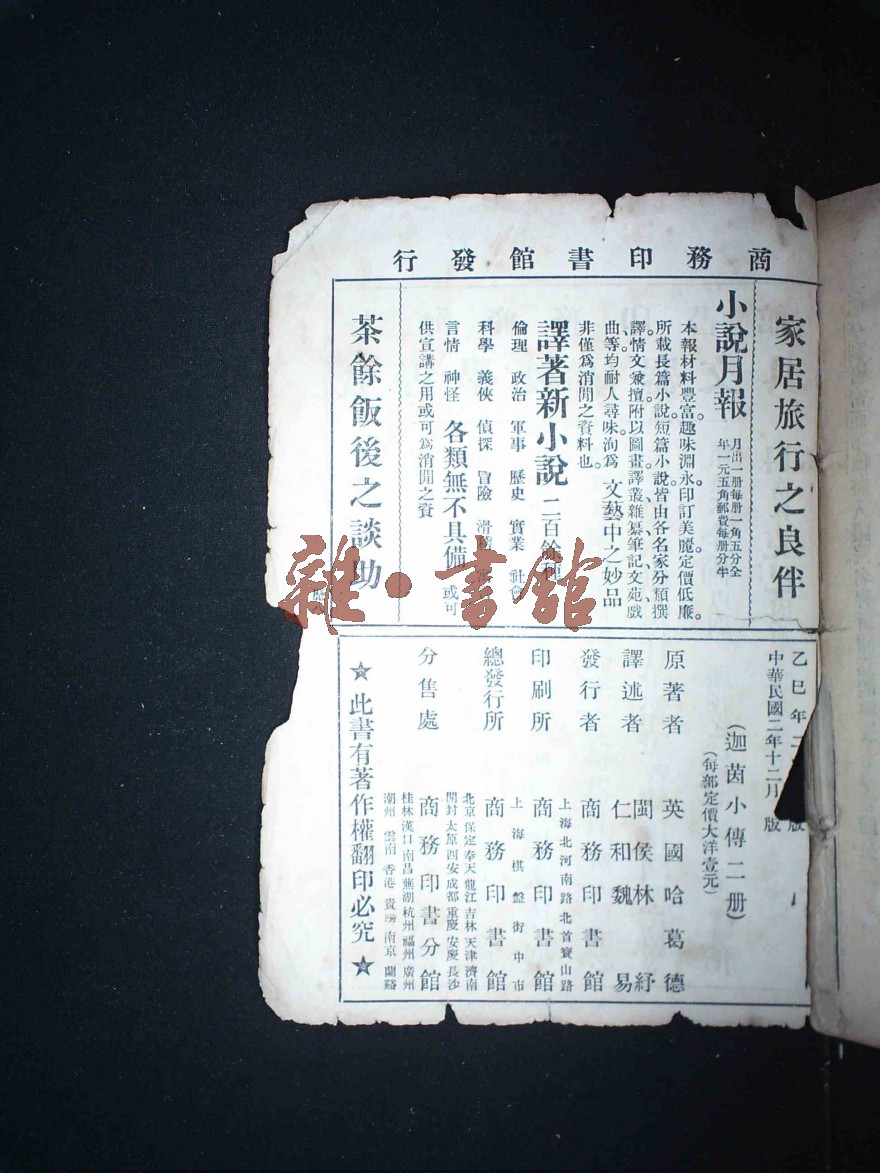 商務印書館發行
家居旅行之良伴
小說月報
月出一册每册一角五分全
年一元五角郵費每册分半
本報材料豐富趣味淵永印訂美麗定價低廉。
所載長篇小說短篇小說皆由各名家分類撰
譯情文兼擅附以圖畫譯叢雜纂筆記文苑戲
曲等均耐人尋味洵爲 文藝中之妙品
非僅爲消閒之資料也。
譯著新小說 二百餘種
倫理 政治 軍事 歷史 實業 社會
科學 義俠 偵探 冒險 滑稽
言情 神怪 各類無不具備 或可
供宣講之用或可爲消閒之資
茶餘飯後之談助
乙巳年二 版
中華民國二年十二月 版
(迦茵小傳二册)
(每部定價大洋壹元)
原著者 英國哈葛德
譯述者 閩侯林紓
仁和魏易
發行者 商務印書館
上海北河南路北首寶山路
印刷所 商務印書館
上海棋盤街中市
總發行所 商務印書館
北京 保定 奉天 龍江 吉林 天津 濟南
開封 太原 西安 成都 重慶 安慶 長沙
分售處 商務印書分館
桂林 漢口 南昌 蕪湖 杭州 福州 廣州
潮州 雲南 香港 貴陽 南京 蘭谿
★此書有著作權翻印必究★
雜·書館